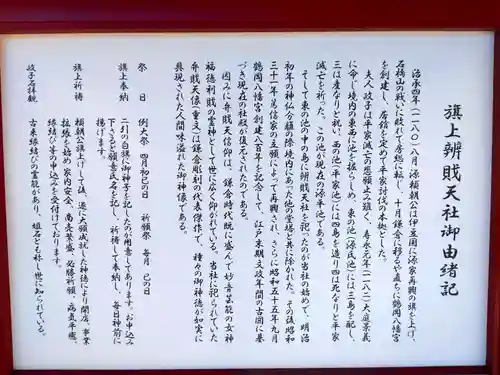 旗上辨財天社御由緒記
治承四年(一一八〇)八月 源頼朝公は伊豆国に源家再興の旗を上げ、
石橋山の戦いに敗れて房総に転じ、十月鎌倉に移るや直ちに鶴岡八幡宮
を創建し、居館を定めて平家討伐の本拠とした。
夫人 政子は平家滅亡の悲願止み難く、寿永元年(一一八二)大庭景義
に命じ境内の東西に池を掘らしめ、東の池(源氏池)には三島を配し、
三は産なりと祝い、西の池(平家池)には四島を造り四は死なりと平家
滅亡を祈った。この池が現在の源平池である。
そして東の池の中の島に辨財天社を祀ったのが当社の始めで、明治
初年の神仏分離の際境内にあった他の堂塔と共に除かれた。その後昭和
三十一年篤信家の立願によって再興され、さらに昭和五十五年九月
鶴岡八幡宮創建八百年を記念して、江戸末期文政年間の古図に基
づき現在の社殿が復元されたのである。
因みに弁財天信仰は、鎌倉時代既に盛んで妙音芸能の女神
福徳利財の霊神として世に広く仰がれている。当社に祀られていた
弁財天像(重文)は鎌倉彫刻の代表傑作で、種々の御神徳が如実に
具現された人間味溢れた御神像である。
祭 日 例大祭 四月初巳の日 祈願祭 毎月 巳の日
旗上奉納 二引の白旗に御神号を記したのが用意してあります。お申込み
下さると願意氏名を記し、祈祷して奉納し、毎日神前に
掲げます。
旗上祈祷 頼朝公旗上げして後、遂に大願成就した神徳により開店、事業
拡張を始め家内安全、商売繁盛、必勝祈願、病気平癒、
縁結び等の申込みを受付けております。
政子石拝観 古来縁結びの霊能があり、姫石とも称し世に知られている。